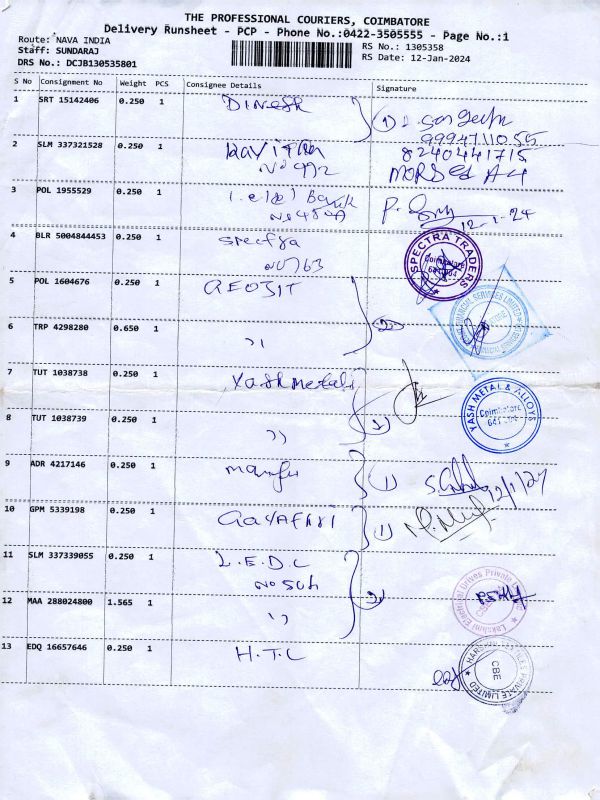 THE PROFESSIONAL COURIERS, COIMBATORE
Delivery Runsheet - PCP - Phone No.:0422-3505555 - Page No.:1
Route: NAVA INDIA
Staff: SUNDARAJ
RS No.: 1305358
DRS No.: DCJB130535801
RS Date: 12-Jan-2024
S No Consignment No Weight PCS Consignee Details Signature
1 SRT 15142406 0.250 1 Dinesh
9994711055
2 SLM 337321528 0.250 1 Kavitha
No 492
8240441715
3 POL 1955529 0.250 1
12.1.24
4 BLR 5004844453 0.250 1 Spectra
No 763
SPECTRA TRADERS
Coimbatore
5 POL 1604676 0.250 1 GEOJIT
FINANCIAL SERVICES LIMITED
6 TRP 4298280 0.650 1 ,,
7 TUT 1038738 0.250 1 Yash metals
YASH METAL & ALLOYS
Coimbatore
8 TUT 1038739 0.250 1 ,,
9 ADR 4217146 0.250 1
12/1/24
10 GPM 5339198 0.250 1 Gayathri
11 SLM 337339055 0.250 1 L.E.D.C
No 504
Lakshmi Electrical Drives Private
12 MAA 288024800 1.565 1 ,,
13 EDQ 16657646 0.250 1 H.T.L
PRIVATE LIMITED
CBE